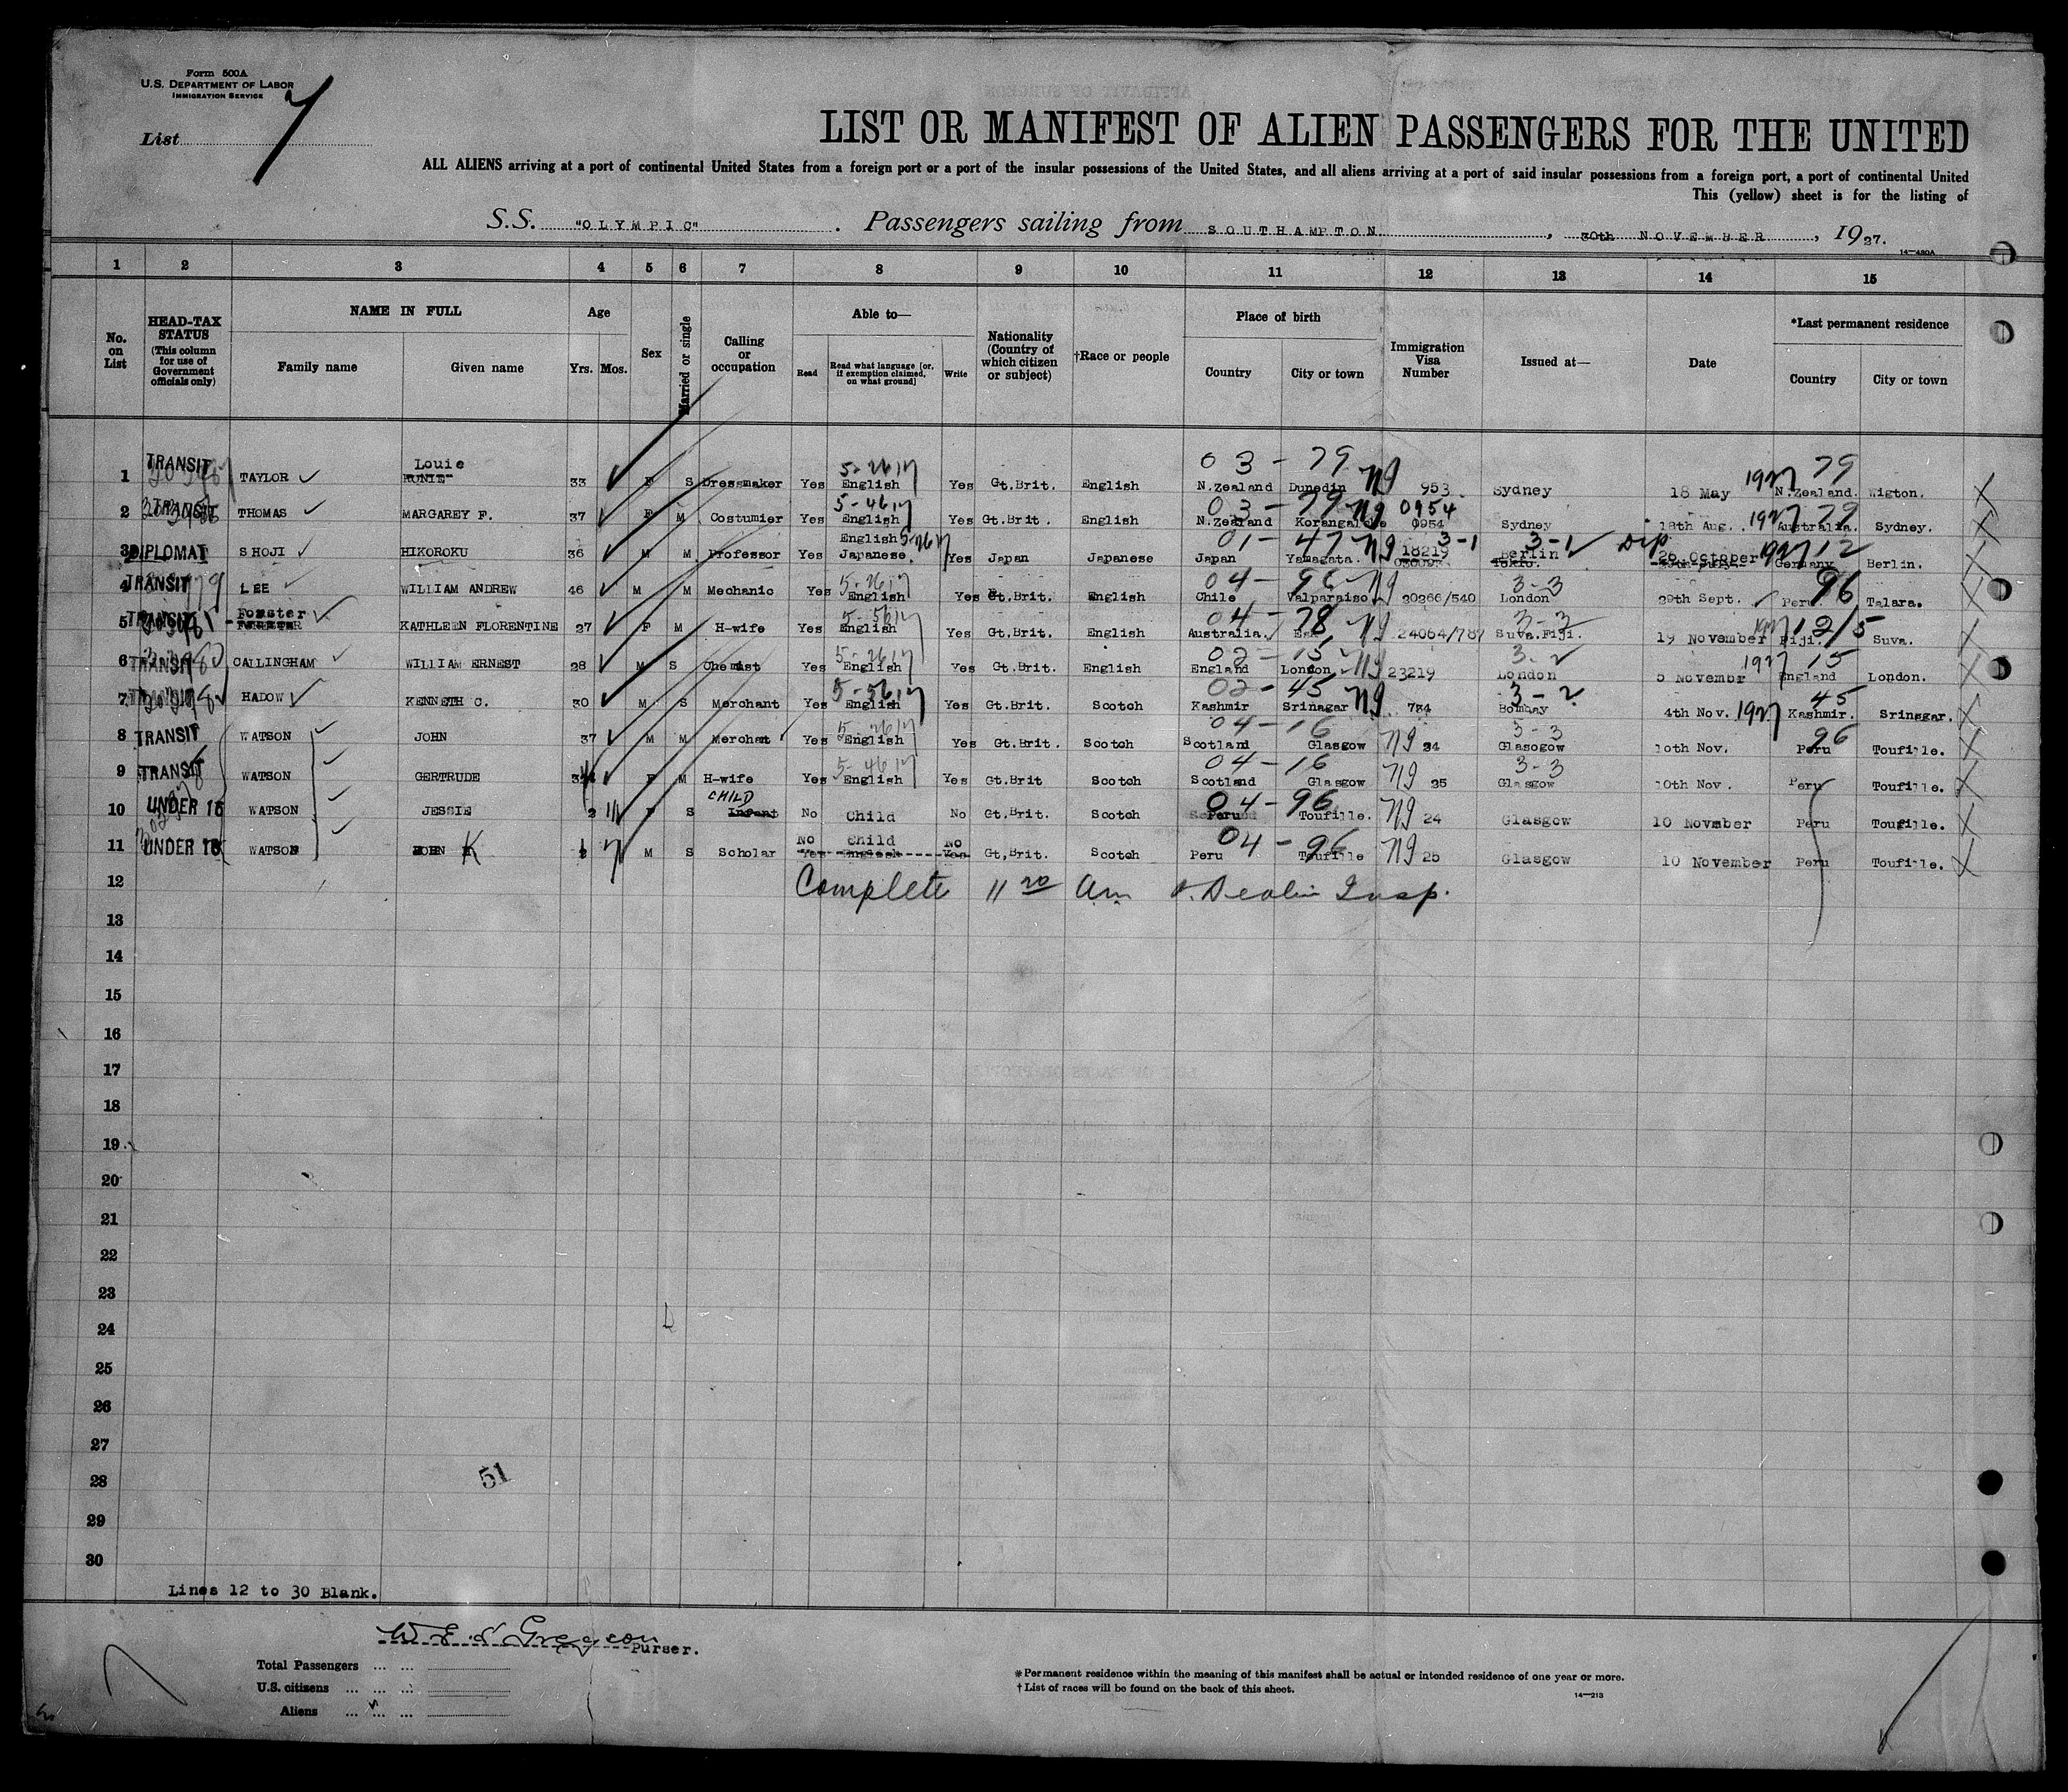 Form 500A
U.S. DEPARTMENT OF LABOR
IMMIGRATION SERVICE
List 7
LIST OR MANIFEST OF ALIEN PASSENGERS FOR THE UNITED
ALL ALIENS arriving at a port of continental United States from a foreign port or a port of the insular possessions of the United States, and all aliens arriving at a port of said insular possessions from a foreign port, a port of continental United
This (yellow) sheet is for the listing of
S.S. "OLYMPIC" . Passengers sailing from SOUTHAMPTON , 30th NOVEMBER , 1927.
14—480A
1 2 3 4 5 6 7 8 9 10 11 12 13 14 15
No. on List
HEAD-TAX STATUS (This column for use of Government officials only)
NAME IN FULL
Family name Given name
Age
Yrs. Mos.
Sex
Married or single
Calling or occupation
Able to—
Read Read what language [or, if exemption claimed, on what ground] Write
Nationality (Country of which citizen or subject)
†Race or people
Place of birth
Country City or town
Immigration Visa Number
Issued at—
Date
*Last permanent residence
Country City or town
Louie 5-26 17 03-79 1927 79
1 TRANSIT TAYLOR 33 F S Dressmaker Yes English Yes Gt.Brit. English N.Zealand Dunedin NJ 953 Sydney 18 May N.Zealand. Wigton.
5-46 17 03-79 0954 1927 79
2 TRANSIT THOMAS MARGAREY F. 37 F M Costumier Yes English Yes Gt.Brit. English N.Zealand NJ 0954 Sydney 18th Aug. Australia. Sydney.
English 5-26 17 01-47 3-1 3-1 Dip 1927 12
3 DIPLOMAT SHOJI HIKOROKU 36 M M Professor Yes Japanese. Yes Japan Japanese Japan Yamagata. NJ 18219 Berlin 26 October Germany Berlin.
5-26 17 04-96 3-3 96
4 TRANSIT LEE WILLIAM ANDREW 46 M M Mechanic Yes English Yes Gt.Brit. English Chile Valparaiso NJ 20266/540 London 29th Sept. Peru. Talara.
Forster 5-56 17 04-78 3-3 1927 12/5
5 TRANSIT KATHLEEN FLORENTINE 27 F M H-wife Yes English Yes Gt.Brit. English Australia. Esk NJ 24064/787 Suva.Fiji. 19 November Fiji. Suva.
5-26 17 02-15 3-2 1927 15
6 TRANSIT CALLINGHAM WILLIAM ERNEST 28 M S Chemist Yes English Yes Gt.Brit. English England London NJ 23219 London 5 November England London.
5-56 17 02-45 3-2 45
7 TRANSIT HADOW KENNETH C. 30 M S Merchant Yes English Yes Gt.Brit. Scotch Kashmir Srinagar NJ 734 Bombay 4th Nov. 1927 Kashmir. Srinagar.
5-26 17 04-16 3-3 96
8 TRANSIT WATSON JOHN 37 M M Merchant Yes English Yes Gt.Brit. Scotch Scotland Glasgow NJ 34 Glasogow 10th Nov. Peru Toufille.
5-46 17 04-16 3-3
9 TRANSIT WATSON GERTRUDE F M H-wife Yes English Yes Gt.Brit Scotch Scotland Glasgow NJ 35 Glasgow 10th Nov. Peru Toufille.
CHILD 04-96
10 UNDER 16 WATSON JESSIE 2 11 F S Infant No Child No Gt.Brit. Scotch Peru Toufille. NJ 24 Glasgow 10 November Peru Toufille.
No Child No 04-96
11 UNDER 16 WATSON JOHN K 1 7 M S Scholar Yes English Yes Gt,Brit. Scotch Peru Toufille NJ 25 Glasgow 10 November Peru Toufille.
12 Complete 11 20 Am Insp.
13
14
15
16
17
18
19
20
21
22
23
24
25
26
27
28 51
29
30
Lines 12 to 30 Blank.
Purser.
Total Passengers ... ...
U.S. citizens ... ... ...
Aliens ... ... ...
*Permanent residence within the meaning of this manifest shall be actual or intended residence of one year or more.
†List of races will be found on the back of this sheet.
14—213